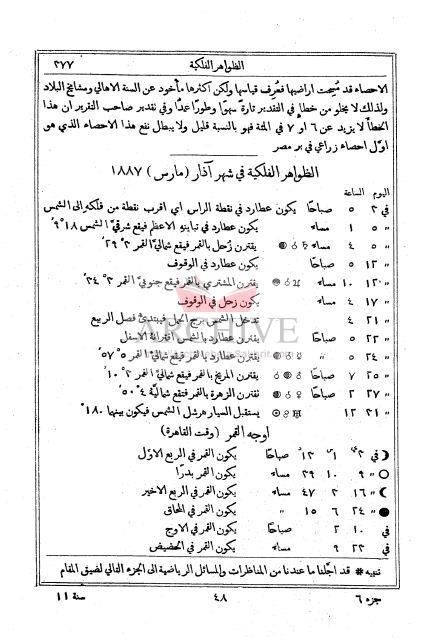 الظواهر الفلكية ٣٧٧
الاحصاء قد مُسِحت اراضيها فعُرِف قياسها ولكن اكثرها مأخوذ عن السنة الاهالي ومشايخ البلاد
ولذلك لا يخلو من خطإٍ في التقدير تارةً سهوًا وطورًا عمدًا وفي تقدير صاحب التقرير ان هذا
الخطأ لا يزيد عن ٦ او ٧ في المئة فهو بالنسبة قليل ولا يبطل نفع هذا الاحصاء الذي هو
اوّل احصاء زراعي في بر مصر
الظواهر الفلكية في شهر آذار (مارس) ١٨٨٧
اليوم الساعة
في ٢ ٥ صباحًا يكون عطارد في نقطة الراس اي اقرب نقطة من فلكه الى الشمس
" ٥ ١ مساء يكون عطارد في تباينهِ الاعظم فيقع شرقيَّ الشمس ١٨° ٩′
" ٥ ٤ مساء يقترن زُحل بالقمر فيقع شماليَّ القمر ٣° ٢٩′
" ١٢ ٥ صباحًا يكون عطارد في الوقوف
" ١٢ ١٠ مساء يقترن المشتري بالقمر فيقع جنوبيَّ القمر ٣° ٣٤′
" ١٧ ٤ مساء يكون زحل في الوقوف
" ٢١ ٤ تدخل الشمس برج الحمل فيبتدئ فصل الربيع
" ٢٢ ٥ صباحًا يقترن عطارد بالشمس اقترانهُ الاسفل
" ٢٤ ٥ " يقترن عطارد بالقمر فيقع شماليَّ القمر ٥° ٥٧′
" ٢٥ ٧ صباحًا يقترن المريخ بالقمر فيقع شماليَّ القمر ٢° ١٠′
" ٢٧ ٢ صباحًا تقترن الزهرة بالقمر فتقع شماليَّهُ ٤° ٥٠′
" ٣١ ١٢ يستقبل السيار هرشل الشمس فيكون بينهما ١٨٠°
ARCHIVE
اوجه القمر (وقت القاهرة)
في ٢ ١ ١٣ صباحًا يكون القمر في الربع الاوّل
" ٩ ١٠ ٣٩ مساء يكون القمر بدرًا
" ١٦ ٢ ٤٧ مساء يكون القمر في الربع الاخير
" ٢٤ ٦ ١٥ " يكون القمر في المحاق
في ١٠ ٢ صباحًا يكون القمر في الاوج
في ٢٢ ٩ مساء يكون القمر في الحضيض
تنبيه * قد اجّلنا ما عندنا من المناظرات والمسائل الرياضية الى الجزء التالي لضيق المقام
جزء ٦ ٤٨ سنة ١١